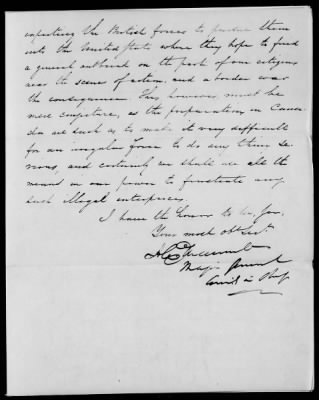 expecting the British forces to pursue them
into the United States where they hope to find
a general outbreak on the part of our citizens
near the scenes of action, and a border war
the consequence. This, however, must be
mere conjecture, as the preparations in Cana-
da are such as to make it very difficult
for an irregular force to do any thing se-
rious, and certainly we shall use all the
means in our power to frustrate any
such illegal enterprises.
I have the honor to be, Gov,
Your most obt Servt
Macomb
Major General
Comdg in Chief